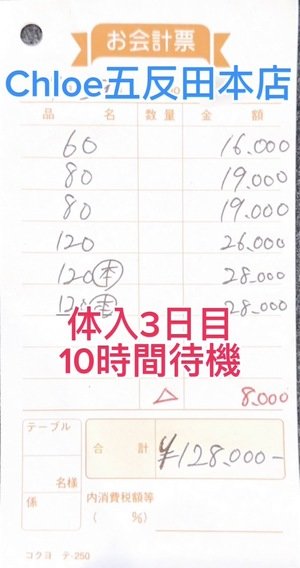 お会計票
Chloe五反田本店
品名 数量 金額
60 16.000
80 19.000
80 19.000
120 26.000
120 本 28.000
120 本 28.000
体入3日目
10時間待機
△ 8.000
テーブル
名様
係
合計 ¥128.000-
内消費税額等
( %)
コクヨ テ-250